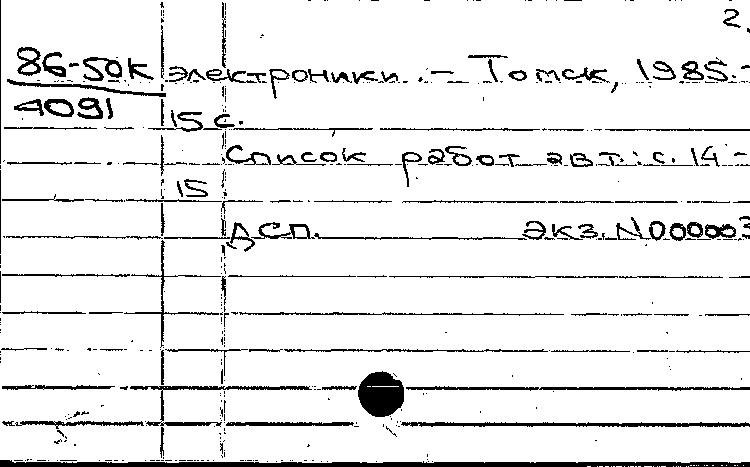 2.
86-50к электроники. - Томск, 1985.-
4091
15 с.
Список работ авт.: с. 14 -
15
ДСП. Экз. N000003